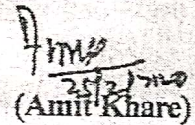 25/2/2020
(Amit Khare)